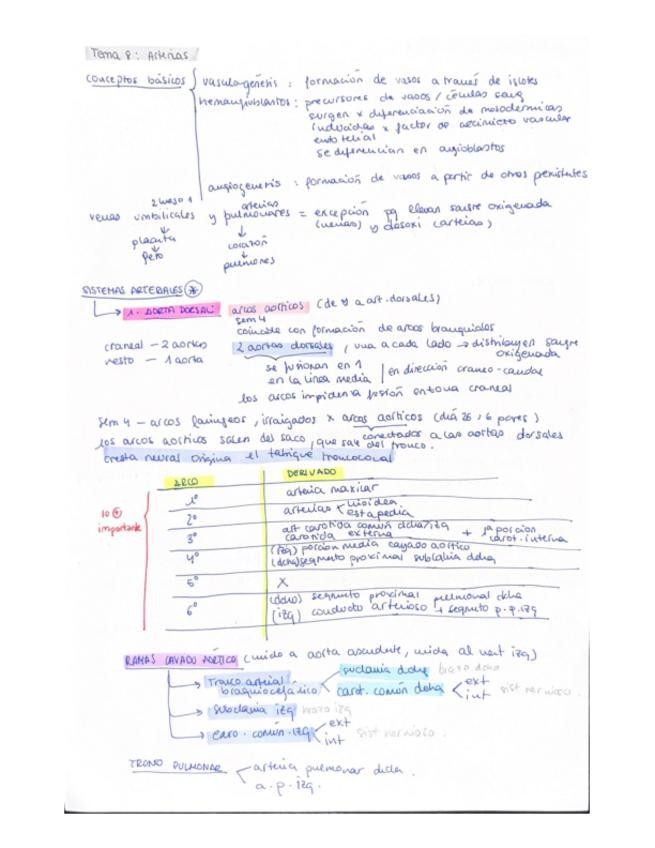 Tema 8: Arterias
conceptos básicos
vasculogénesis : formación de vasos a través de islotes
hemangioblastos : precursores de vasos / células sang
surgen x diferenciación de mesodérmicas
inducidas x factor de crecimiento vascular
endotelial
se diferencian en angioblastos
angiogenesis : formación de vasos a partir de otros preexistentes
arterias
venas umbilicales y pulmonares = excepción pq llevan sangre oxigenada
(venas) y desoxi (arterias)
placenta
feto
corazón
pulmones
SISTEMAS ARTERIALES *
1. AORTA DORSAL: arcos aórticos (de v a art. dorsales)
sem 4
coincide con formación de arcos branquiales
craneal - 2 aortas
resto - 1 aorta
2 aortas dorsales, una a cada lado → distribuyen sangre
oxigenada
se fusionan en 1
en la línea media
en dirección craneo-caudal
los arcos impiden la fusión en zona craneal
sem 4 - arcos faríngeos, irrigados x arcos aórticos (día 26, 6 pares)
los arcos aórticos salen del saco, que sale del tronco.
conectados a las aortas dorsales
cresta neural origina el tabique troncoconal
ARCO DERIVADO
10 +
importante
1º arteria maxilar
2º arterias hioidea
estapedia
3º art carotida común dcha/izq
carotida externa + 1ª porcion
carot. interna
4º (izq) porción media cayado aórtico
(dcha) segmento proximal subclavia dcha
5º X
6º (dcho) segmento proximal pulmonal dcha
(izq) conducto arterioso + segmento p. p. izq
RAMAS CAYADO AÓRTICO (unido a aorta ascendente, unida al vent izq)
Tronco arterial
braquiocefálico
subclavia dcha brazo dcho
carot. común dcha
ext
int
sist nervioso.
subclavia izq brazo izq
caro. común. izq
ext
int
sist nervioso.
TRONO PULMONAR
arteria pulmonar dcha.
a. p. izq.